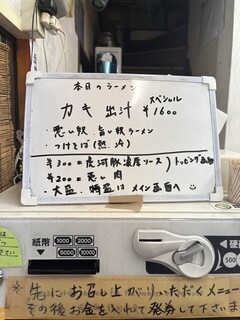 本日のラーメン
カキ 出汁 スペシャル ¥1600
・悪い奴、旨い奴ラーメン
・つけそば(熱、冷)
¥300=虎河豚濃厚ソース)トッピング
¥200=悪い肉
・大盛、特盛はメイン画面へ
紙幣 1000 2000
5000 10000
硬
500
※先にお召し上がりいただくメニュー
その後お金を入れて発券して下さいま